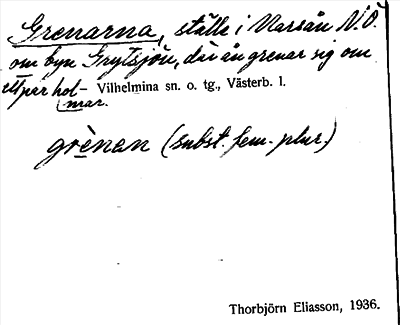 Grenarna, ställe i Marsån N.O.
om byn Grytsjön, där ån grenar sig om
ett par hol- Vilhelmina sn. o. tg., Västerb. l.
mar.
grènen (subst. fem. plur.)
Thorbjörn Eliasson, 1936.